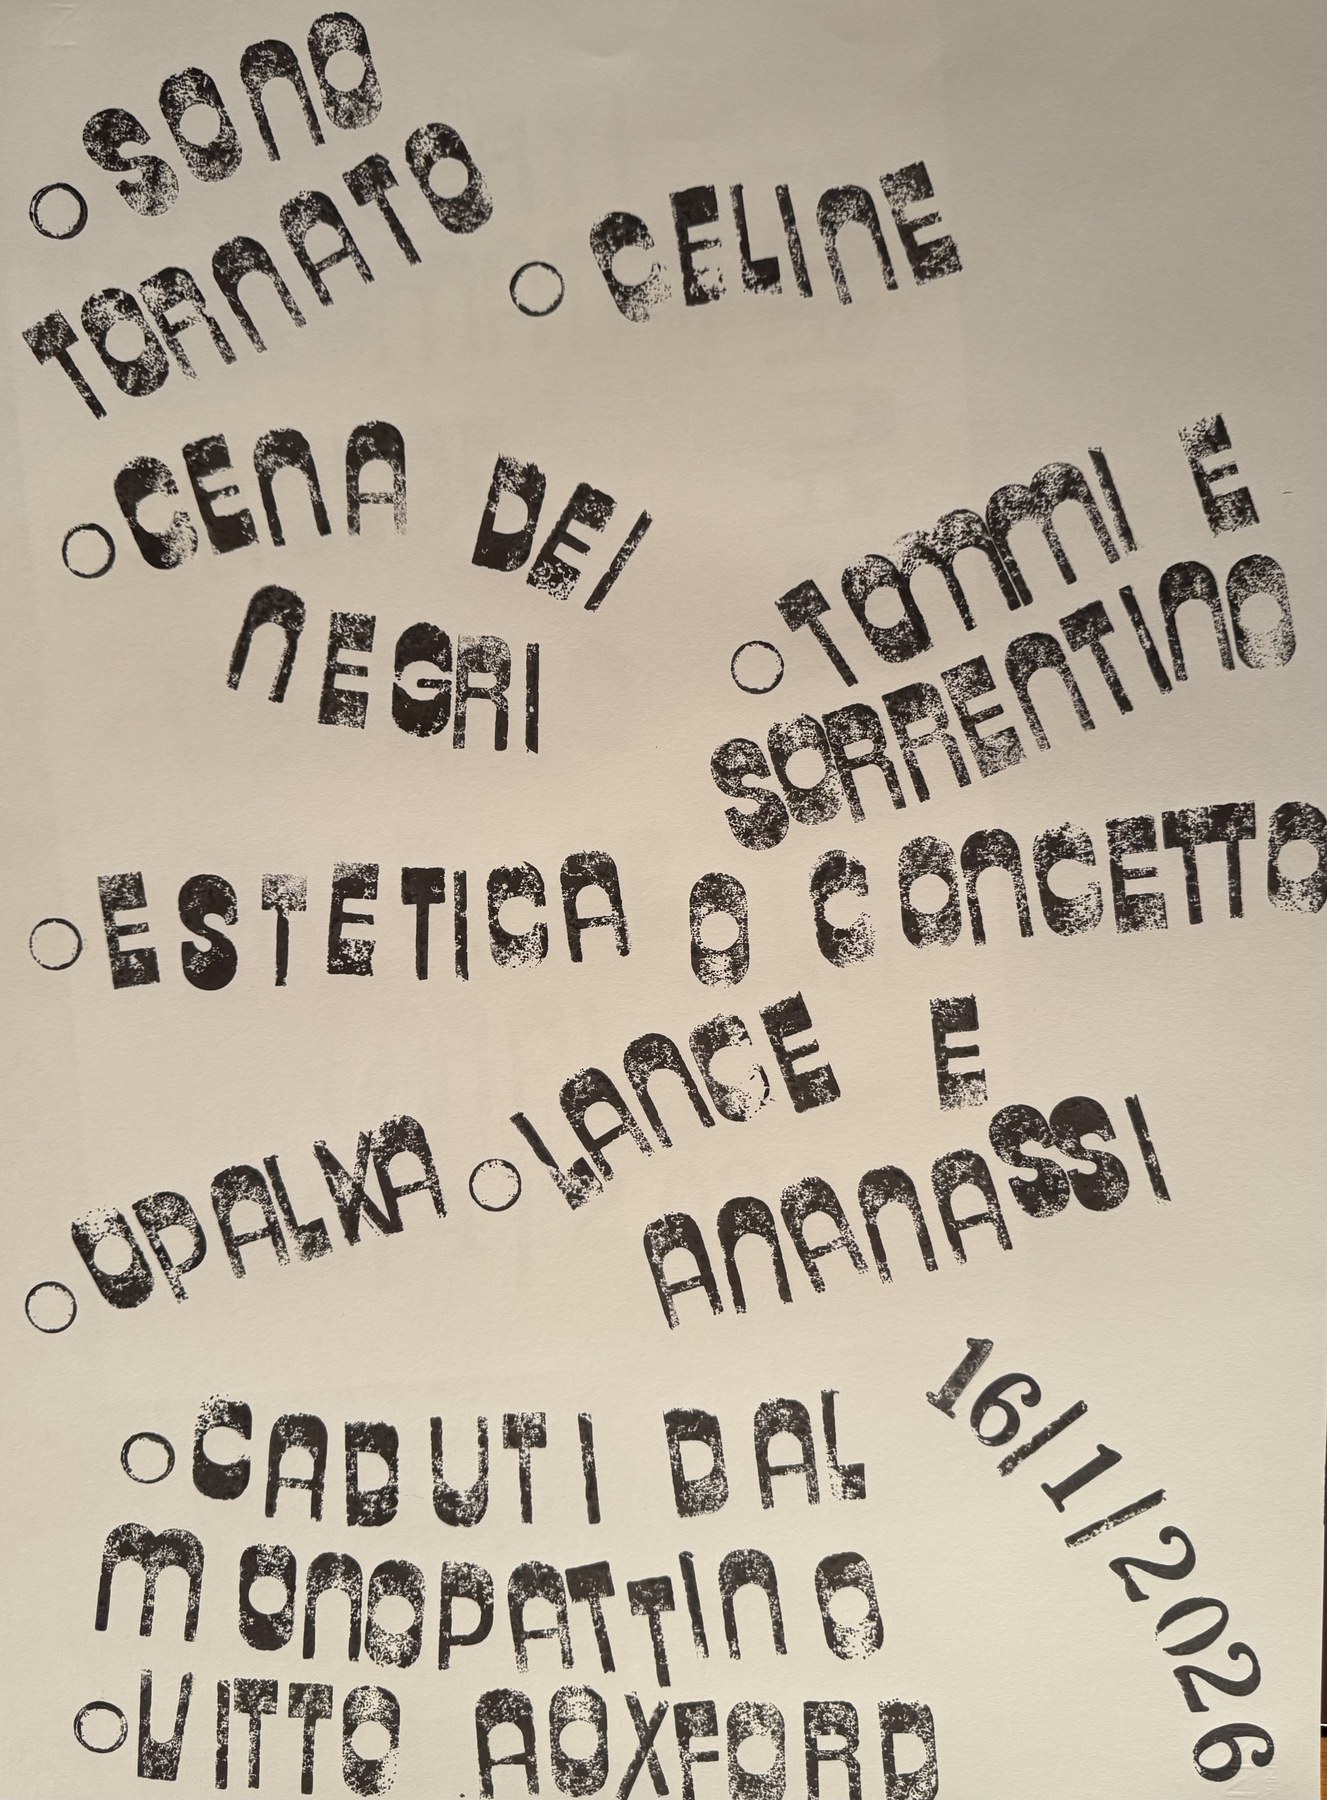 ○ SONO
TORNATO
○ CELINE
○ CENA DEI
NEGRI
○ TOMMI E
SORRENTINO
○ ESTETICA O CONCETTO
○ OPALXA
○ LANCE E
ANANASSI
○ CADUTI DAL
MONOPATTINO
○ VITTO AOXFORD
16/1/2026